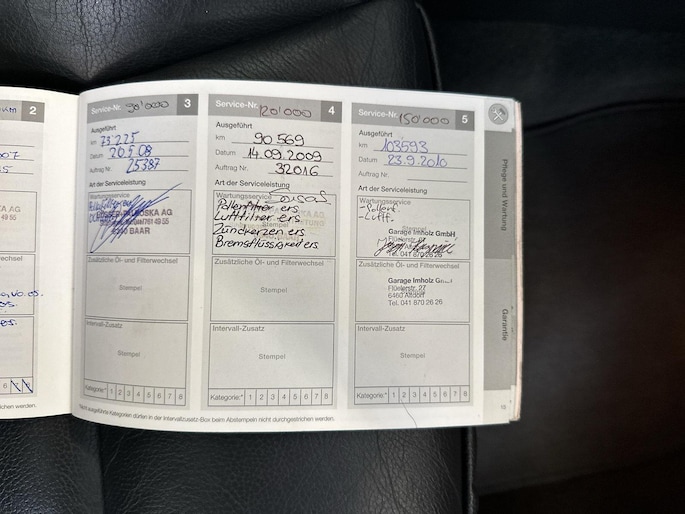 KM 2
07
5
Service-Nr. 90'000 3
Ausgeführt
km 73 225
Datum 20 5 08
Auftrag Nr. 25387
Art der Serviceleistung
Wartungsservice
6340 BAAR
Zusätzliche Öl- und Filterwechsel
Stempel
Intervall-Zusatz
Stempel
Kategorie:* 1 2 3 4 5 6 7 8
Service-Nr. 120'000 4
Ausgeführt
km 90 569
Datum 14.09.2009
Auftrag Nr. 32016
Art der Serviceleistung
Wartungsservice
Pollenfilter ers.
Luftfilter ers.
Stempel
Zündkerzen ers.
Bremsflüssigkeit ers.
Zusätzliche Öl- und Filterwechsel
Stempel
Intervall-Zusatz
Stempel
Kategorie:* 1 2 3 4 5 6 7 8
Service-Nr. 150 000 5
Ausgeführt
km 103593
Datum 23.9.2010
Auftrag Nr.
Art der Serviceleistung
Wartungsservice
- Pollenf.
- Luftf.
Stempel
Garage Imholz GmbH
Tel. 041 870 26 26
Zusätzliche Öl- und Filterwechsel
Garage Imholz GmbH
Flüelerstr. 27
6460 Altdorf
Tel. 041 870 26 26
Intervall-Zusatz
Stempel
Kategorie:* 1 2 3 4 5 6 7 8
*Nicht ausgeführte Kategorien dürfen in der Intervallzusatz-Box beim Abstempeln nicht durchgestrichen werden.
Pflege und Wartung
Garantie